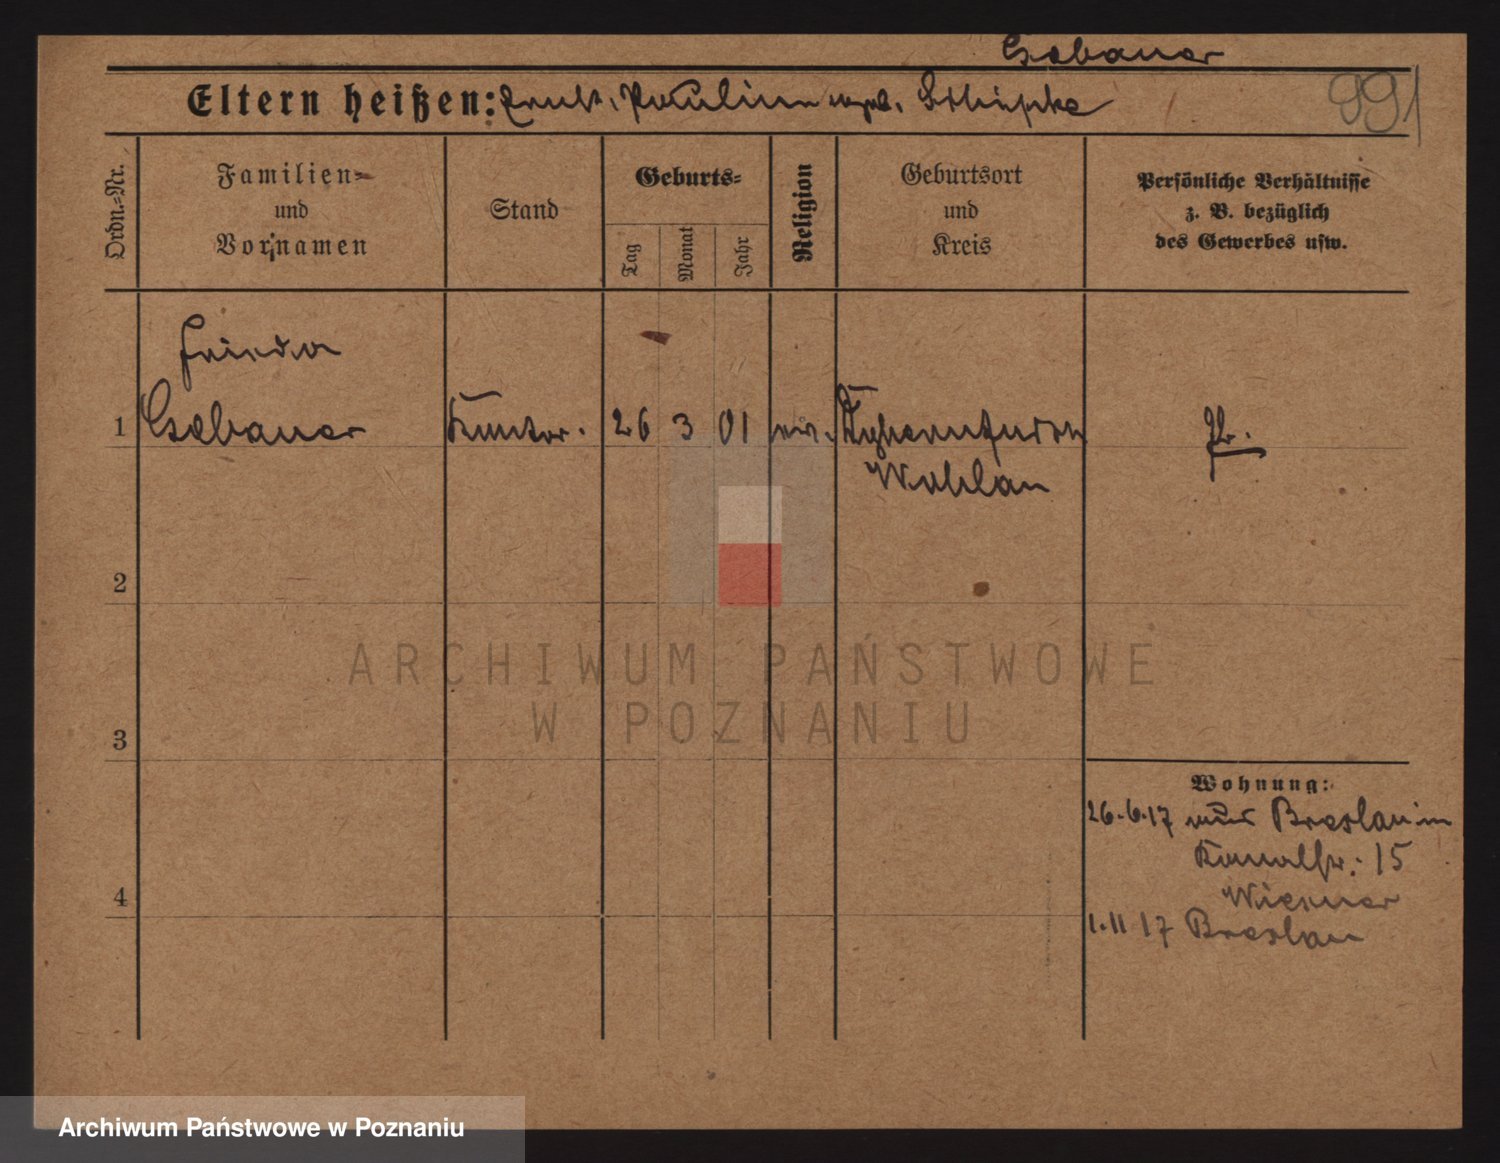 Gebauer
Eltern heißen: Ernst, Pauline geb. Schipke
991
Ordn.-Nr.
Familien-
und
Vornamen
Stand
Geburts-
Tag
Monat
Jahr
Religion
Geburtsort
und
Kreis
Persönliche Verhältnisse
z. B. bezüglich
des Gewerbes usw.
Frieda
1 Gebauer 26 3 01 Pr.
Wohlau
2
3
4
Wohnung:
26.6.17 Breslau
15
Wiesner
1.11 17 Breslau
ARCHIWUM PAŃSTWOWE
W POZNANIU
Archiwum Państwowe w Poznaniu